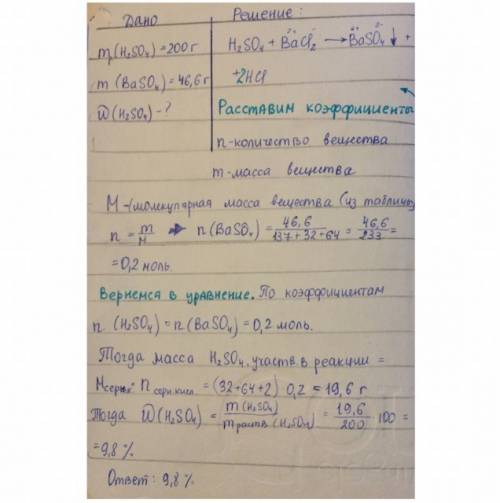 Дано
Решение:
m(H₂SO₄)=200 г
m (BaSO₄)=46,6 г
ω(H₂SO₄)-?
H₂SO₄ + BaCl₂ → BaSO₄↓ +
+2HCl
Расставим коэффициенты
n-количество вещества
m-масса вещества
M-молекулярная масса вещества (из таблицы)
n = m/M → n(BaSO₄) = 46,6/137+32+64 = 46,6/233 =
=0,2 моль.
Вернемся в уравнение. По коэффициентам
n (H₂SO₄) = n(BaSO₄) = 0,2 моль.
Тогда масса H₂SO₄, участв. в реакции =
Mсерн.к · n серн.кисл. = (32+64+2) 0,2 = 19,6 г
Тогда ω(H₂SO₄) = m(H₂SO₄)/m раств (H₂SO₄) = 19,6/200 100 =
=9,8 %
Ответ: 9,8 %.